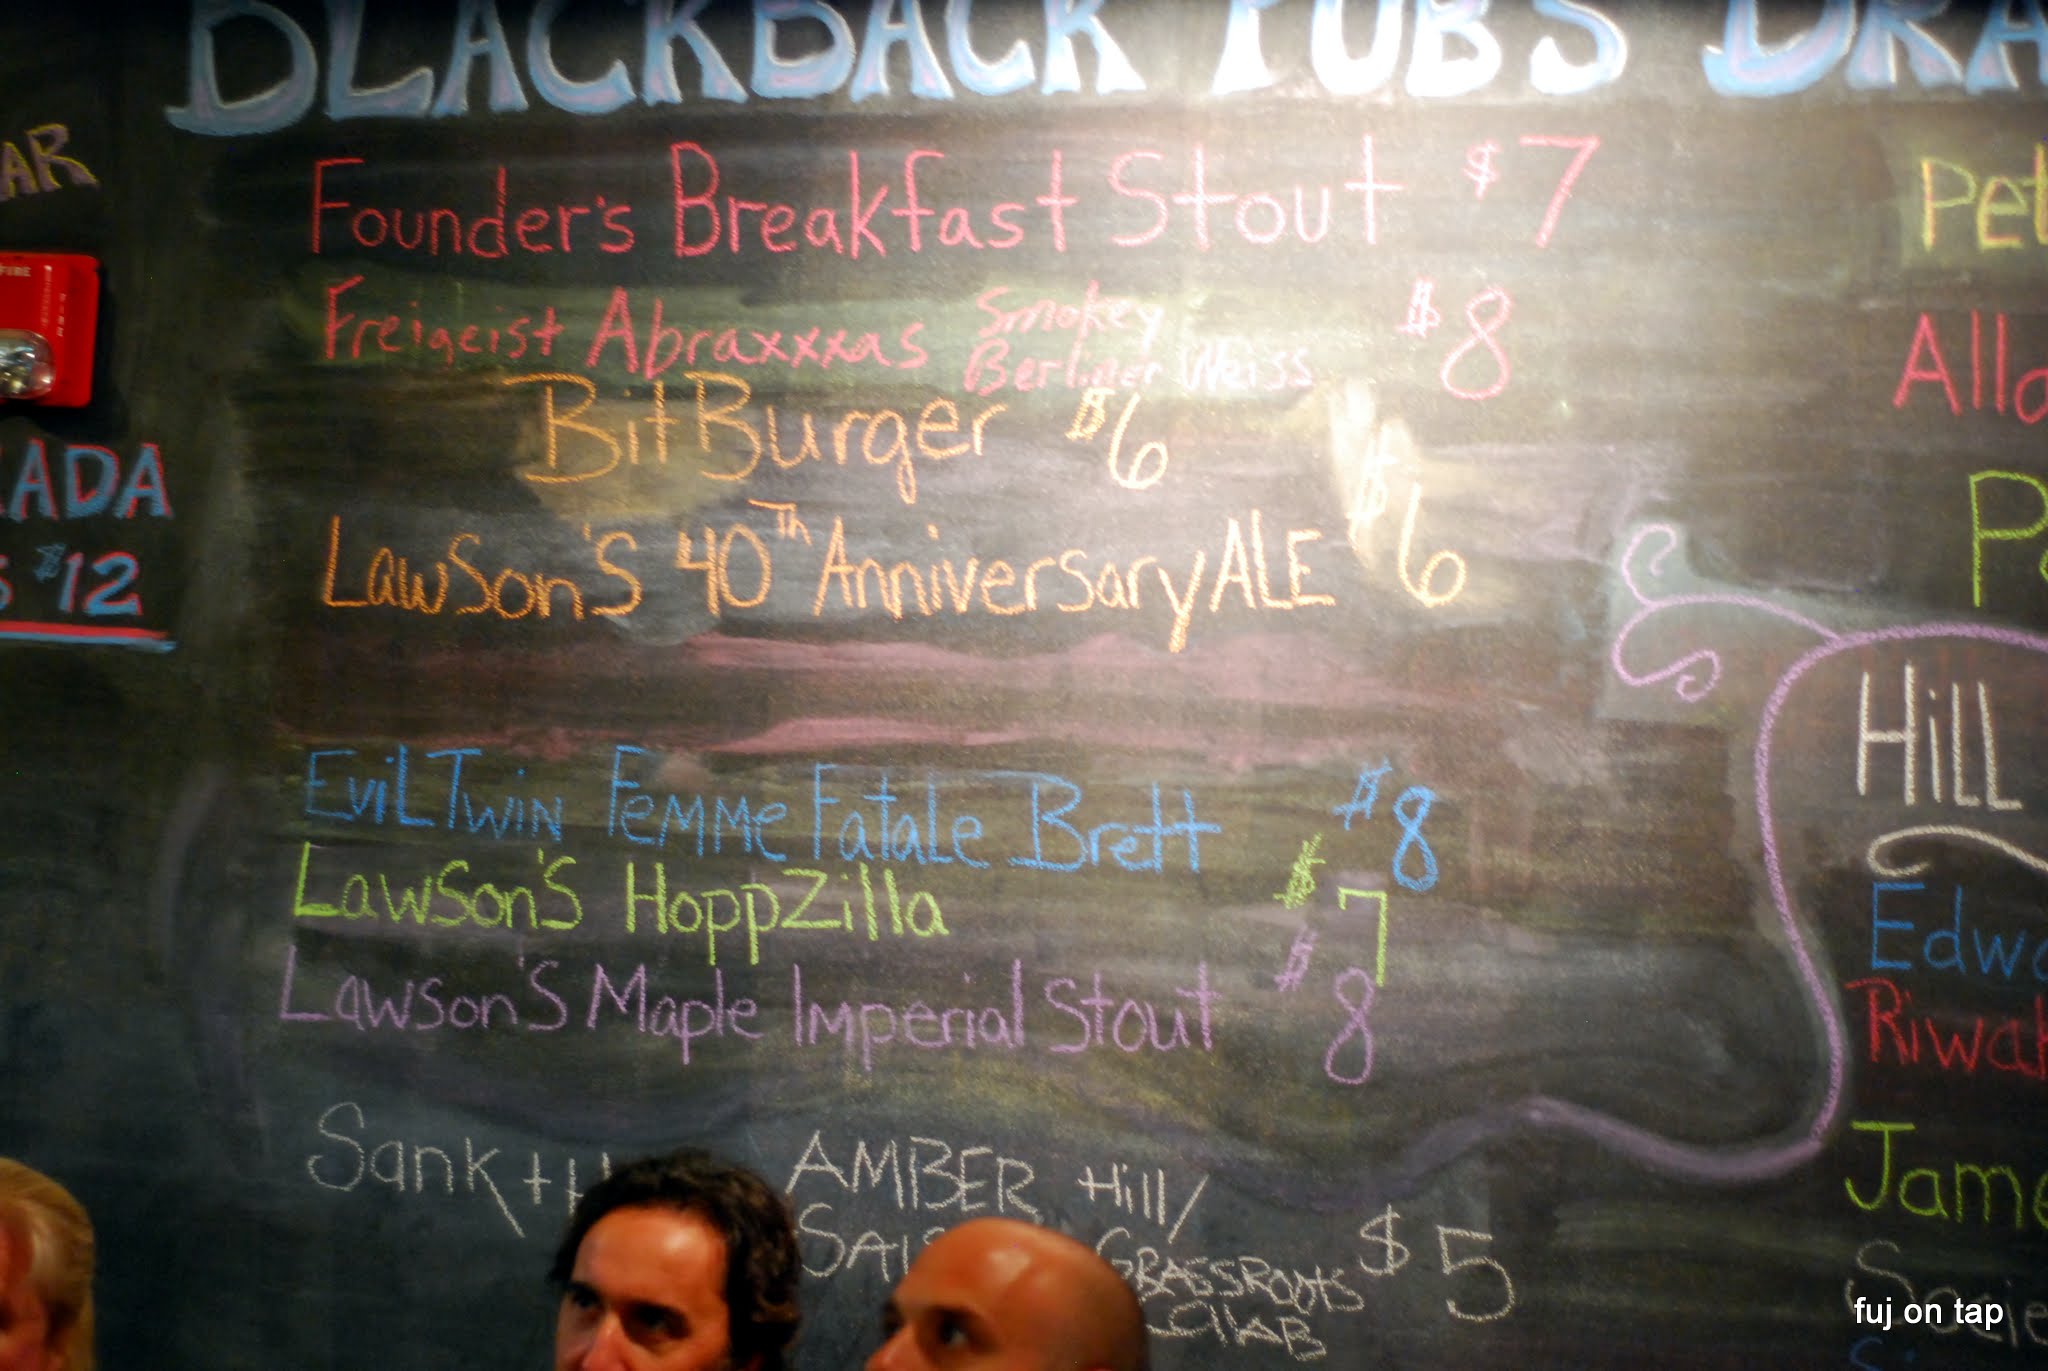 BLACKBACK PUB'S DRA
AR
FIRE
Founder's Breakfast Stout $7
Pet
Freigeist Abraxxxas Smokey Berliner Weiss $8
Alla
BitBurger $6
ADA
$12
Lawson's 40Th Anniversary ALE $6
Hill
Evil Twin Femme Fatale Brett $8
Lawson's Hoppzilla $7
Edwa
Lawson's Maple Imperial Stout $8
Riwa
Sank + H AMBER Hill/
Jame
Sais Grassroots $5
Collab
Socie
fuj on tap